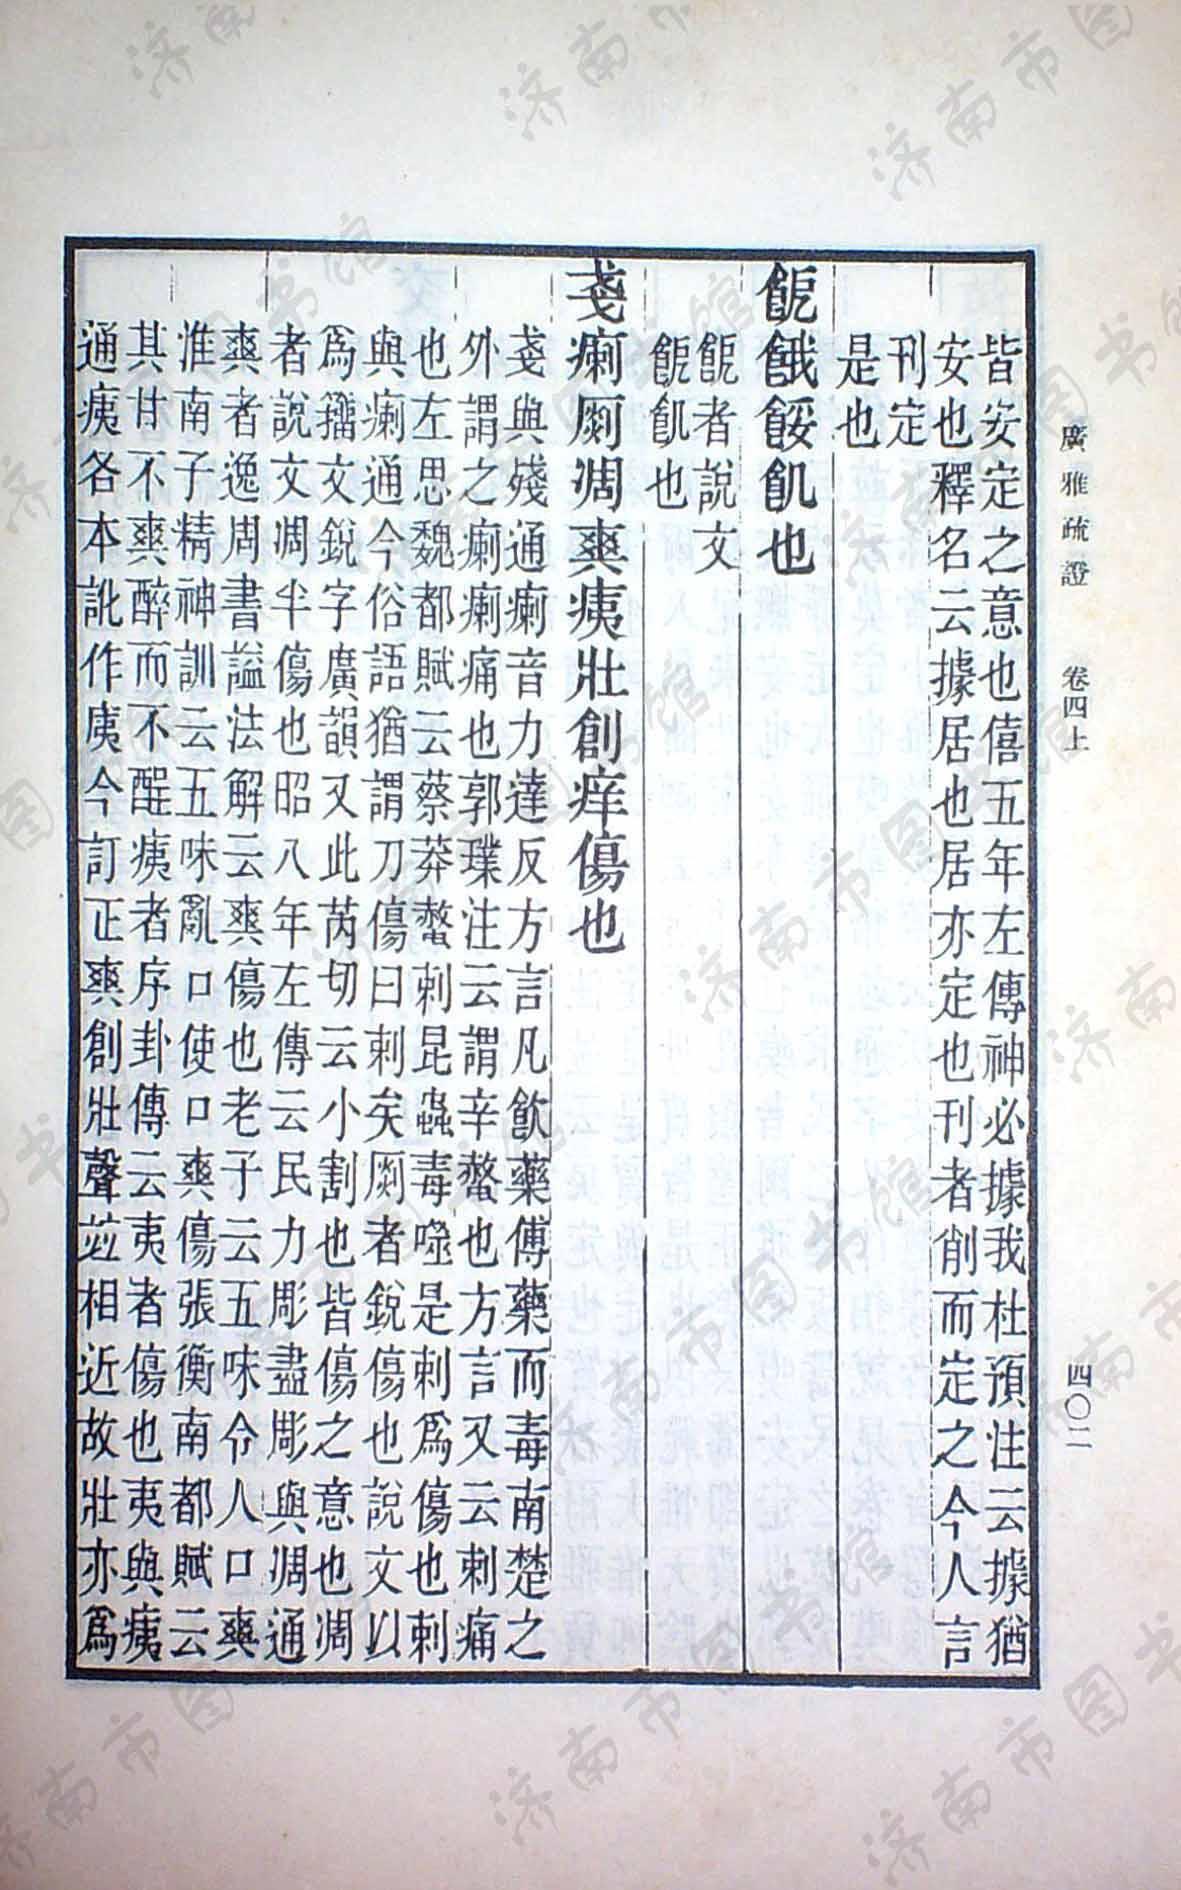 廣雅疏證 卷四上 四〇二
皆安定之意也僖五年左傳神必據我杜預注云據猶
安也釋名云據居也居亦定也刊者削而定之今人言
刊定
是也
䭃餓餒飢也
䭃者說文
䭃飢也
戔瘌𠪱凋爽痍壯創痒傷也
戔與殘通瘌音力達反方言凡飲藥傅藥而毒南楚之
外謂之瘌瘌痛也郭璞注云謂辛螫也方言又云刺痛
也左思魏都賦云蔡莽螫刺昆蟲毒噬是刺爲傷也刺
與瘌通今俗語猶謂刀傷曰刺矣𠪱者銳傷也說文以
爲籀文銳字廣韻又此芮切云小割也皆傷之意也凋
者說文凋半傷也昭八年左傳云民力彫盡彫與凋通
爽者逸周書謚法解云爽傷也老子云五味令人口爽
淮南子精神訓云五味亂口使口爽傷張衡南都賦云
其甘不爽醉而不酲痍者序卦傳云夷者傷也夷與痍
通痍各本訛作庿今訂正爽創壯聲並相近故壯亦爲